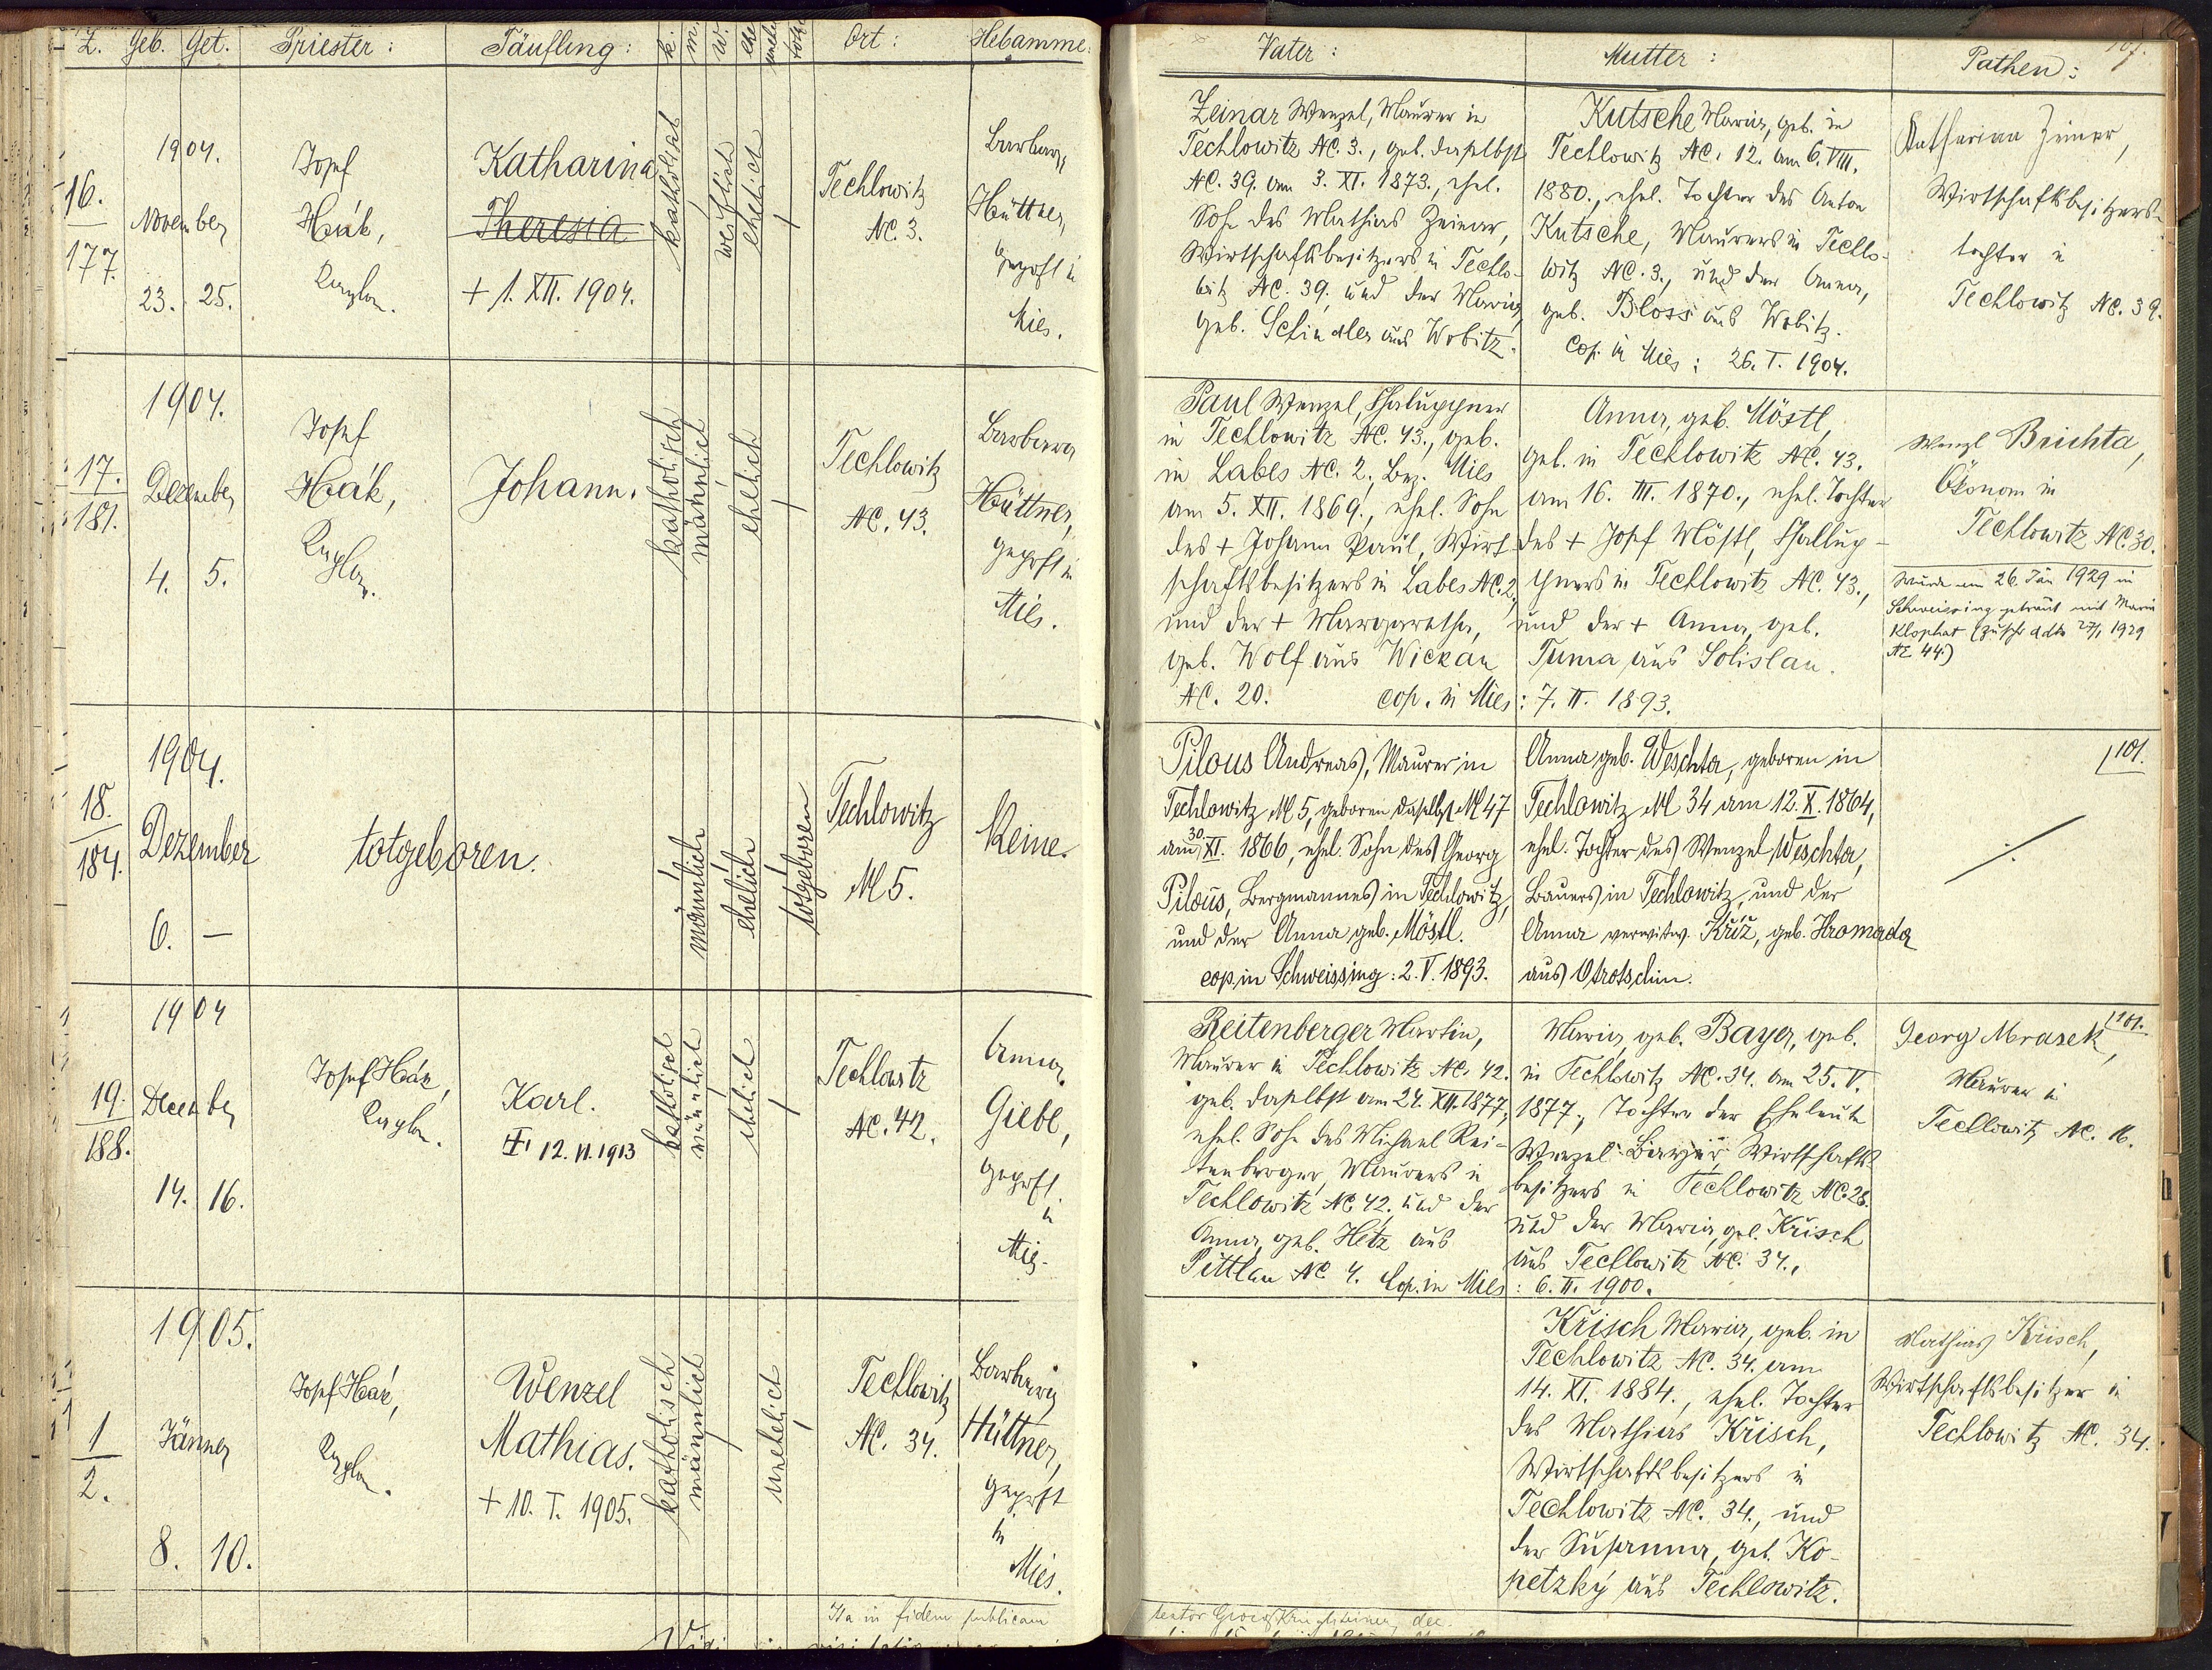 Z. Geb. Get. Priester: Täufling: k. m. w. ehe Ort: Hebamme:
Vater: Mutter: Pathen:
16.
177.
1904.
November
23. 25.
Josef
Hák,
Kaplan.
Katharina
Theresia
+ 1. XII. 1904.
katholisch
weiblich
ehelich
Techlowitz
NC. 3.
Barbara
Hüttner,
geprft in
Mies.
Zeinar Wenzel, Maurer in
Techlowitz NC. 3., geb. daselbst
NC. 39. am 3. XI. 1873., ehel.
Sohn des Mathias Zeinar,
Wirtschaftsbesitzers in Techlo-
witz NC. 39. und der Maria,
geb. Schindler aus Wobitz.
Kutsche Maria, geb. in
Techlowitz NC. 12. am 6. VIII.
1880., ehel. Tochter des Anton
Kutsche, Maurers in Techlo-
witz NC. 3., und der Anna,
geb. Bloss aus Wobitz.
Cop. in Mies: 26. I. 1904.
Katharina Zeinar,
Wirtschaftsbesitzers-
tochter in
Techlowitz NC. 39.
17.
181.
1904.
Dezember
4. 5.
Josef
Hák,
Kaplan.
Johann.
katholisch
männlich
ehelich
Techlowitz
NC. 43.
Barbara
Hüttner,
geprft in
Mies.
Paul Wenzel, Chaluppner
in Techlowitz NC. 43., geb.
in Labes NC. 2., Bez. Mies
am 5. XII. 1869., ehel. Sohn
des + Johann Paul, Wirt-
schaftsbesitzers in Labes NC. 2,
und der + Margaretha,
geb. Wolf aus Wickau
NC. 20. cop. in Mies: 7. II. 1893.
Anna, geb. Möstl,
geb. in Techlowitz NC. 43.
am 16. III. 1870., ehel. Tochter
des + Josef Möstl, Challup-
pners in Techlowitz NC. 43.,
und der + Anna, geb.
Tuma aus Solislau.
Wenzl Brichta,
Ökonom in
Techlowitz NC. 30.
Wurde am 26. Jän 1929 in
Schweissing getraut mit Maria
Klophat (Zuschr ddto 27/1 1929
NE 44.)
18.
184.
1904.
Dezember
6. —
totgeboren.
männlich
ehelich
totgeboren
Techlowitz
N 5.
Keine.
Pilous Andreas, Maurer in
Techlowitz N 5, geboren daselbst N 47
am 30. XI. 1866, ehel. Sohn des Georg
Pilous, Bergmannes in Techlowitz,
und der Anna geb. Möstl.
cop. in Schweissing: 2. V. 1893.
Anna geb. Weschta, geboren in
Techlowitz N 34 am 12. X. 1864,
ehel. Tochter des Wenzel Weschta,
Bauers in Techlowitz, und der
Anna verwitw. Kříž, geb. Hromada
aus Otrotschin.
101.
19.
188.
1904
December
14. 16.
Josef Hák,
Kaplan.
Karl.
12. VI. 1913
katholisch
männlich
ehelich
Techlowitz
NC. 42.
Anna
Giebl,
geprft.
in
Mies.
Reitenberger Martin,
Maurer in Techlowitz NC. 42.
geb. daselbst am 24. XII. 1877,
ehel. Sohn des Michael Rei-
tenberger, Maurers in
Techlowitz NC. 42. und der
Anna, geb. Hetz aus
Pittlau NC. 4. Cop. in Mies: 6. II. 1900.
Maria, geb. Bayer, geb.
in Techlowitz NC. 34. am 25. V.
1877., Tochter der Eheleute
Wenzel Bayer, Wirtschafts-
besitzers in Techlowitz NC. 28.
und der Maria, geb. Krisch
aus Techlowitz NC. 34.,
101.
Georg Mrasek,
Maurer in
Techlowitz NC. 16.
1
2.
1905.
Jänner
8. 10.
Josef Hák,
Kaplan.
Wenzel
Mathias.
+ 10. I. 1905.
katholisch
männlich
unehelich
Techlowitz
NC. 34.
Barbara
Hüttner,
geprft
in
Mies.
Krisch Maria, geb. in
Techlowitz NC. 34. am
14. XI. 1884., ehel. Tochter
des Mathias Krisch,
Wirtschaftsbesitzers in
Techlowitz NC. 34., und
der Susanna, geb. Ko-
petzký aus Techlowitz.
Mathias Krisch,
Wirtschaftsbesitzer in
Techlowitz NC. 34.
Ita in fidem publicam